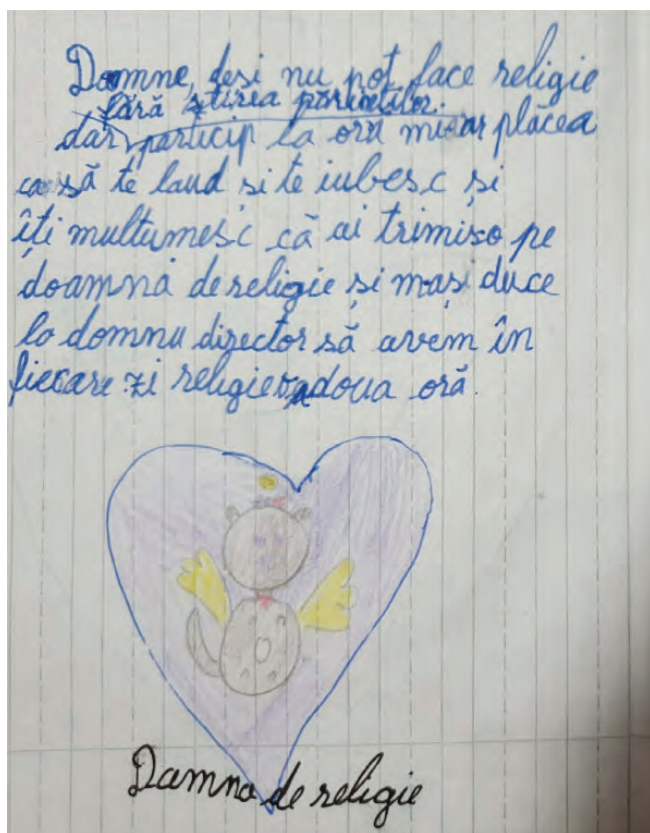 Doamne, desi nu pot face religie
fără știrea părinților.
dar, particip la oră miar plăcea
ca să te laud si te iubesc și
îți multumesc că ai trimiso pe
doamna de religie și mași duce
la domnu director să avem în
fiecare zi religie a doua oră.
Damna de religie